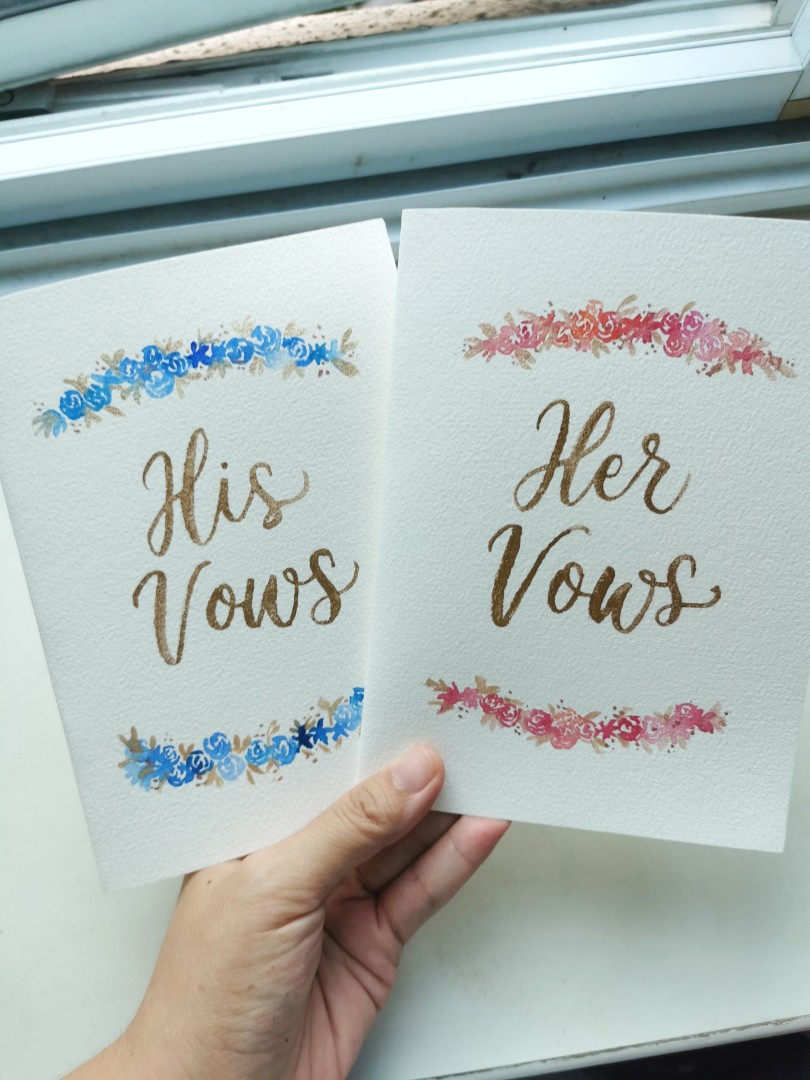 His
Vows
Her
Vows